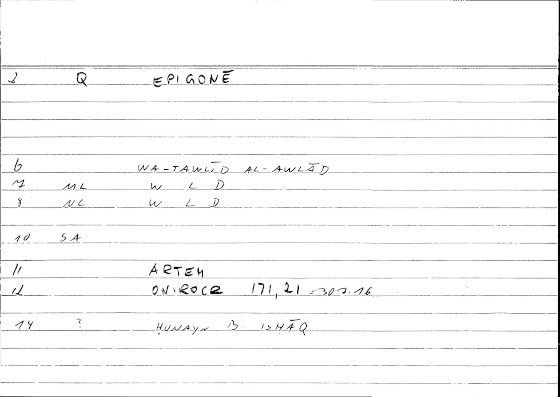 2 Q EPIGONĒ
6 WA-TAWLĪD AL-AWLĀD
7 ML W L D
8 NL W L D
10 SA
11 ARTEM
12 ONIROCR 171,21 = 307.16
14 ? ḤUNAYN B. ISḤĀQ